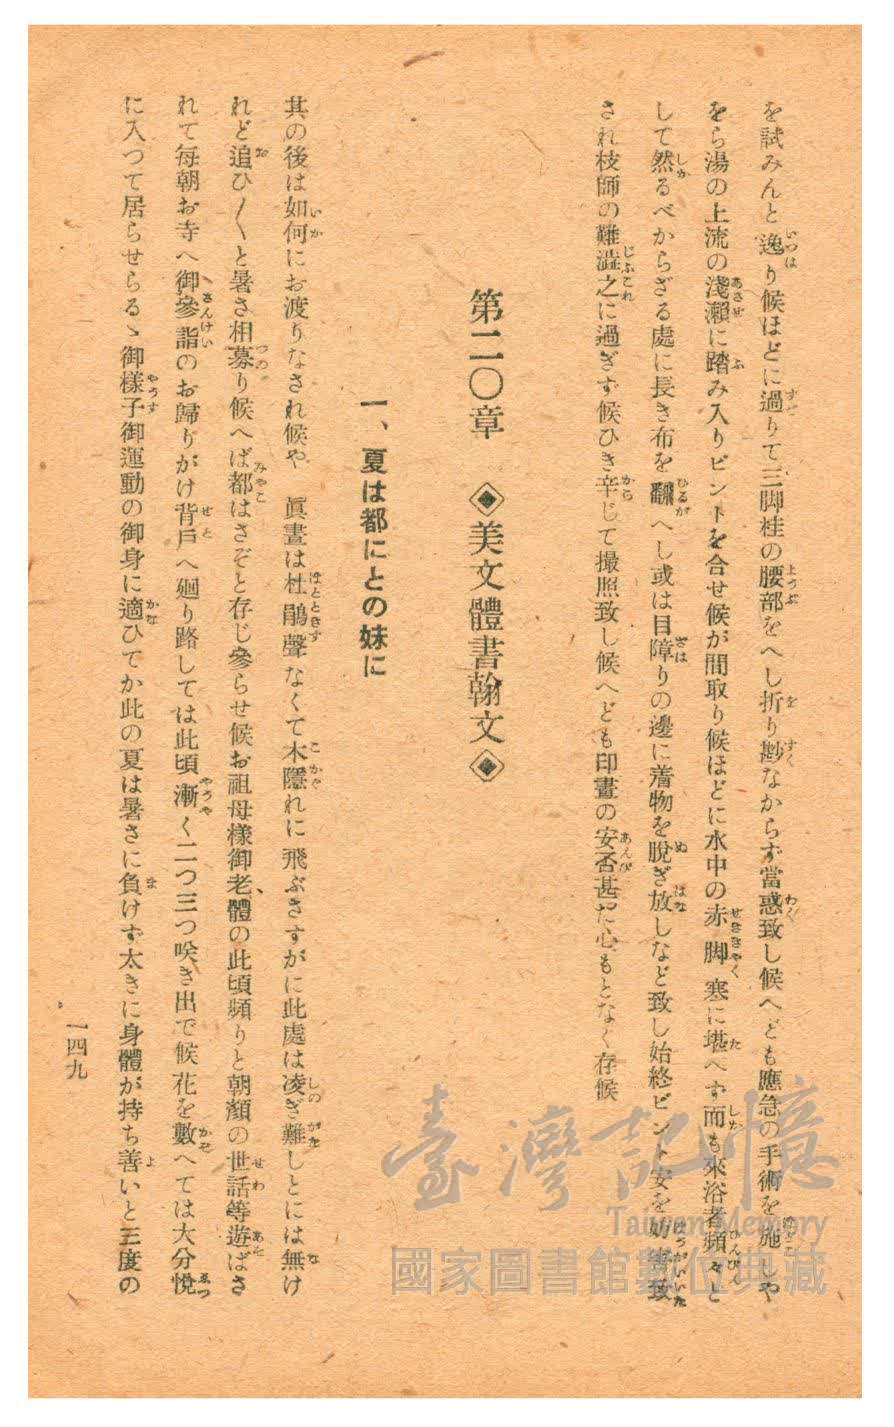 を試みんと逸り候ほどに過りて三脚桂の腰部をへし折り尠なからず當惑致し候へども應急の手術を施しや
をら湯の上流の淺瀨に踏み入りピントを合せ候が間取り候ほどに水中の赤脚寒に堪へず而も來浴者頻々と
して然るべからざる處に長き布を飜へし或は目障りの邊に着物を脫ぎ放しなど致し始終ピント安を妨害致
され枝師の難澁之に過ぎず候ひき辛じて撮照致し候へども印畫の安否甚だ心もとなく存候
第二〇章 ◈美文體書翰文◈
一、夏は都にとの妹に
其の後は如何にお渡りなされ候や 眞晝は杜鵑聲なくて木隱れに飛ぶさすがに此處は凌ぎ難しとには無け
れど追ひ〱と暑さ相募り候へば都はさぞと存じ參らせ候お祖母樣御老體の此頃頻りと朝顏の世話等遊ばさ
れて每朝お寺へ御參詣のお歸りがけ背戶へ廻り路しては此頃漸く二つ三つ咲き出で候花を數へては大分悅
に入つて居らせらるゝ御樣子御運動の御身に適ひてか此の夏は暑さに負けず太きに身體が持ち善いと三度の
一四九
臺灣記憶
Taiwan Memory
國家圖書館數位典藏